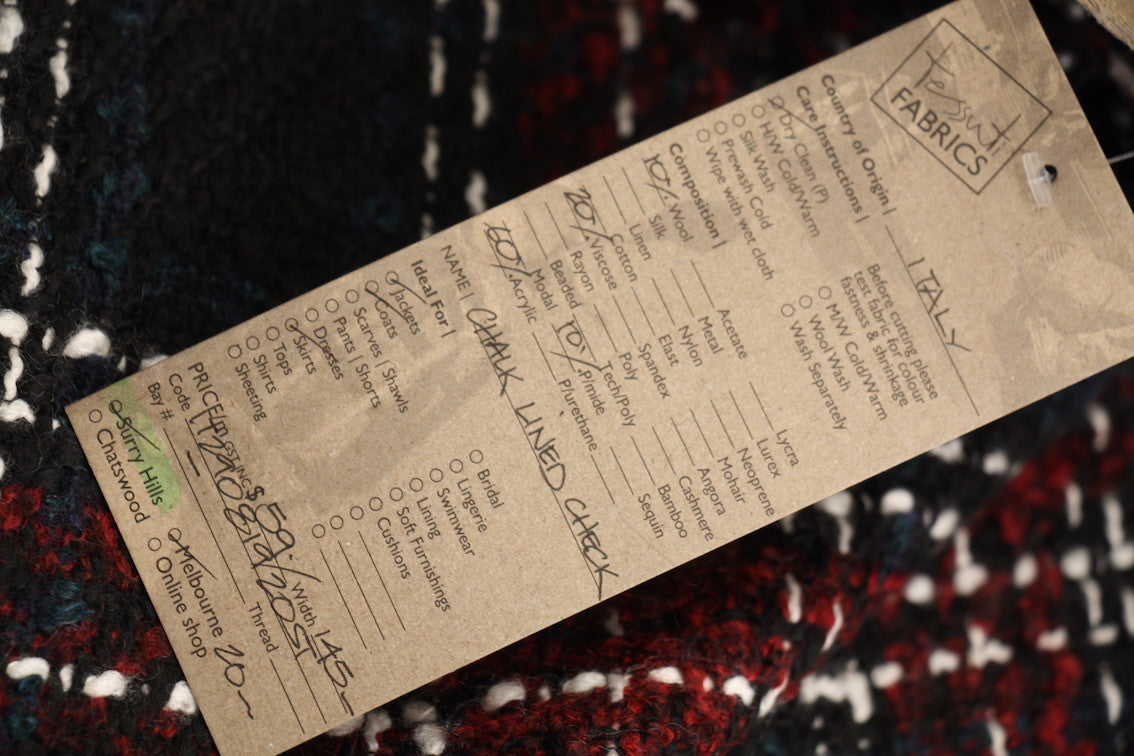 tessuti
FABRICS
Country of Origin | ITALY
Care Instructions |
Dry Clean (P)
H/W Cold/Warm
Silk Wash
Prewash Cold
Wipe with wet cloth
Before cutting please
test fabric for colour
fastness & shrinkage
M/W Cold/Warm
Wool Wash
Wash Separately
Composition |
10% Wool
Silk
Linen
Cotton
20% Viscose
Rayon
Beaded
Modal
60% Acrylic
Acetate
Metal
Nylon
Elast
Spandex
Poly
Tech/Poly
10% P/mide
P/urethane
Lycra
Lurex
Neoprene
Mohair
Angora
Cashmere
Bamboo
Sequin
NAME | CHALK LINED CHECK
Ideal For |
Jackets
Coats
Scarves | Shawls
Pants | Shorts
Dresses
Skirts
Tops
Shirts
Sheeting
Bridal
Lingerie
Swimwear
Lining
Soft Furnishings
Cushions
PRICE $59/ Width 145
Code
Bay # Thread
Surry Hills
Chatswood
Melbourne 20
Online shop